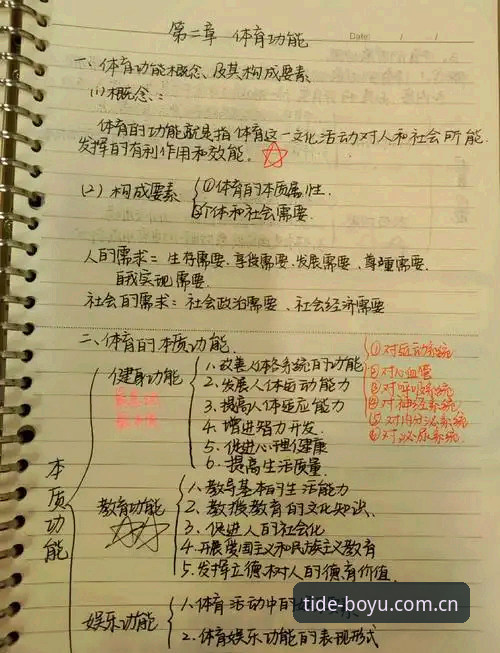 第二章 体育功能
Date: / /
一、体育功能概念、及其构成要素
(1)概念:
体育的功能就是指体育这一文化活动对人和社会所能
发挥的有利作用和效能。
(2) 构成要素 ①体育的本质属性.
②个体和社会需要.
人的需求: 生存需要、享受需要、发展需要、尊重需要、
自我实现需要.
社会的需求: 社会政治需要、社会经济需要
二、体育的本质功能.
本质功能
健身功能
1.改善人体各系统的功能
2.发展人体运动能力
3.提高人体适应能力
4.增进智力开发.
5.促进心理健康
6.提高生活质量.
①对运动系统
②对心血管
③对呼吸系统
④对神经系统
⑤对内分泌系统
⑥对泌尿系统
教育功能
1.教导基本的生活能力
2.教授教育的文化知识、
3.促进人的社会化
4.开展爱国主义和民族主义教育
5.发挥立德树人的德育价值.
娱乐功能
1.体育活动中的
2.体育娱乐功能的表现形式
tide-boyu.com.cn